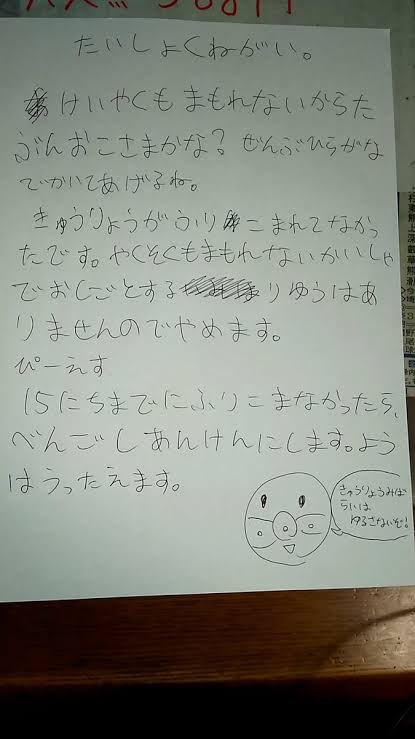 たいしょくねがい。
けいやくも まもれないからた
ぶんおこさまかな? ぜんぶひらがな
でかいてあげるね。
きゅうりょうがふりこまれてなかっ
たです。やくそくもまもれないかいしゃ
でおしごとするりゆうはあ
りませんのでやめます。
ぴーえす
15にちまでにふりこまなかったら、
べんごしあんけんにします。よう
はうったえます。
きゅうりょうみば
らいは
ゆるさないぞ!